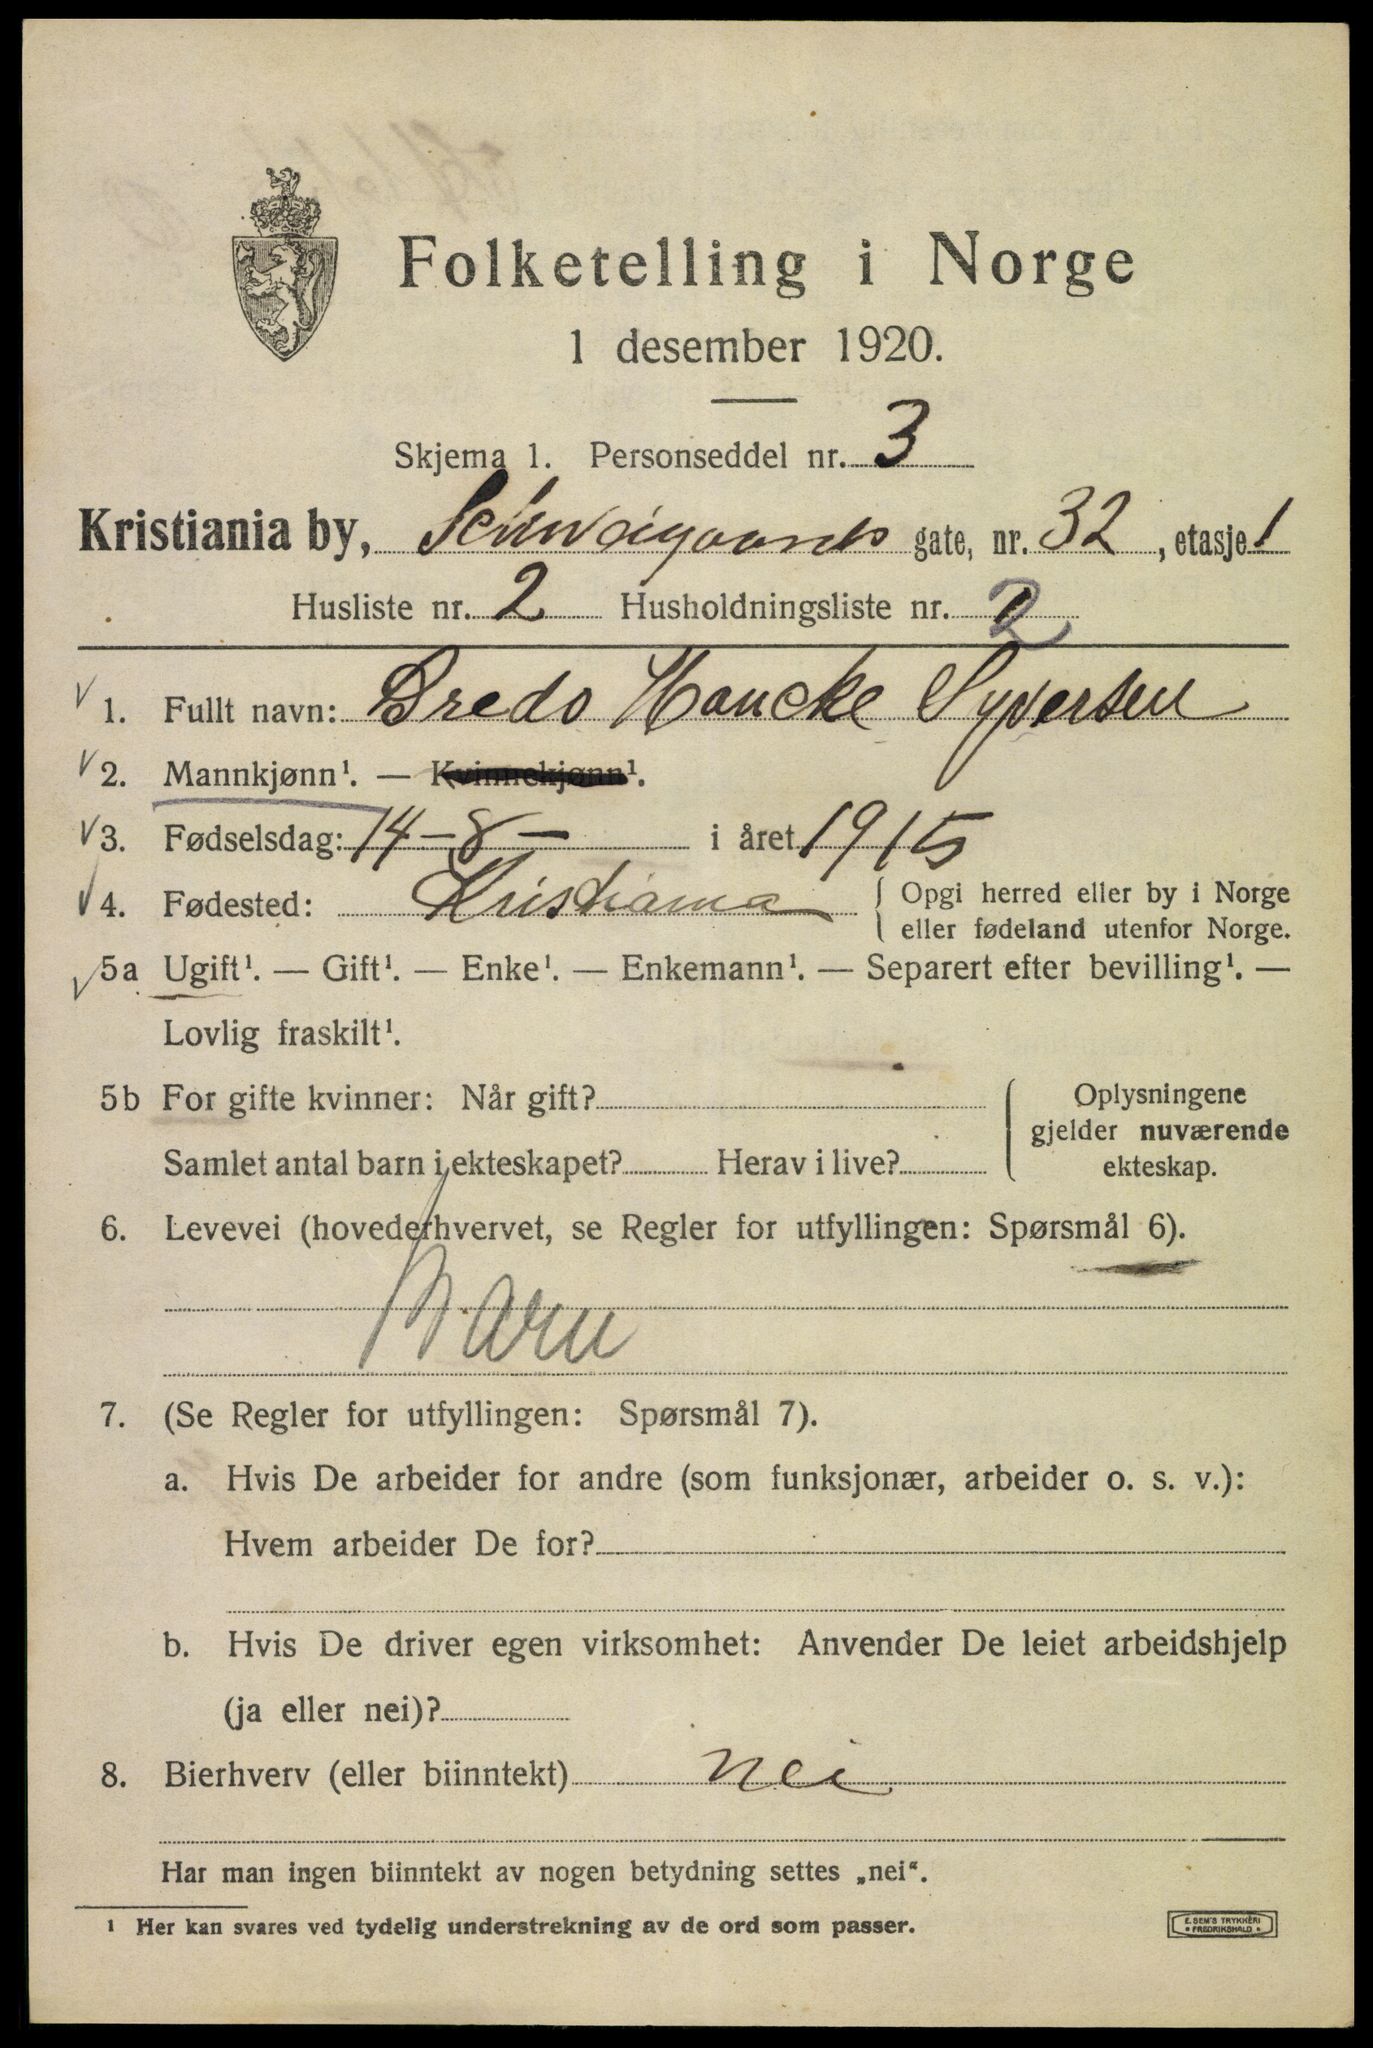 Folketelling i Norge
1 desember 1920.
Skjema 1. Personseddel nr. 3
Kristiania by, Schweigaards gate, nr. 32, etasje 1
Husliste nr. 2 Husholdningsliste nr. 2
1. Fullt navn: Bredo Hancke Syversen
2. Mannkjønn¹. — Kvinnekjønn¹.
3. Fødselsdag: 14-8- i året 1915
4. Fødested: Kristiania { Opgi herred eller by i Norge
eller fødeland utenfor Norge.
5a Ugift¹. — Gift¹. — Enke¹. — Enkemann¹. — Separert efter bevilling¹. —
Lovlig fraskilt¹.
5b For gifte kvinner: Når gift?
Samlet antal barn i ekteskapet? Herav i live?
Oplysningene
gjelder nuværende
ekteskap.
6. Levevei (hovederhvervet, se Regler for utfyllingen: Spørsmål 6).
Barn
7. (Se Regler for utfyllingen: Spørsmål 7).
a. Hvis De arbeider for andre (som funksjonær, arbeider o. s. v.):
Hvem arbeider De for?
b. Hvis De driver egen virksomhet: Anvender De leiet arbeidshjelp
(ja eller nei)?
8. Bierhverv (eller biinntekt) nei
Har man ingen biinntekt av nogen betydning settes „nei“.
¹ Her kan svares ved tydelig understrekning av de ord som passer.
E. SEM'S TRYKKERI
FREDRIKSHALD